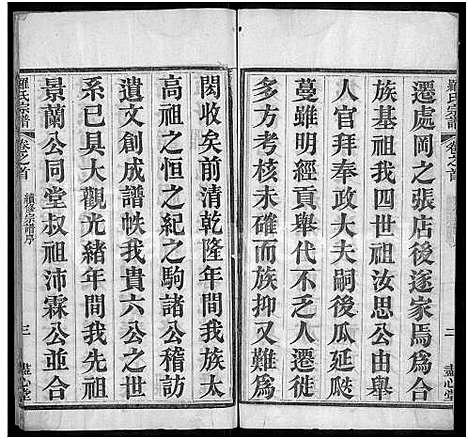 羅氏宗譜
卷之首
二
盡心堂
遷處岡之張店後遂家焉為合
族基祖我四世祖汝思公由舉
人官拜奉政大夫嗣後瓜延瓞
蔓雖明經貢舉代不乏人遷徙
多方考核未確而合族抑又難為
閎收矣前清乾隆年間我族太
高祖之恒公之駒諸公稽訪
遺文創成譜帙我貴六公之世
系已具大觀光緒年間我先祖
景蘭公同堂叔祖沛霖公並合
羅氏宗譜
卷之首
續修宗譜序
三
盡心堂